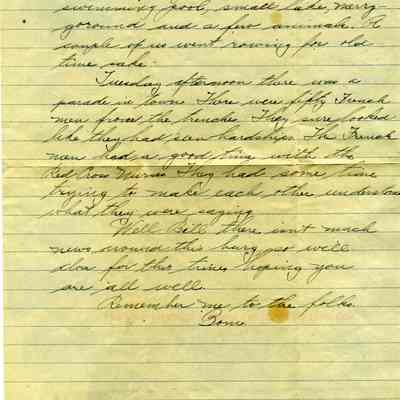 swimming pool, small lake, merry-
goround and a few animals. A
couple of us went rowing for old
time sake.
Tuesday afternoon there was a
parade in town. There were fifty French
men from the trenches. They sure looked
like they had seen hardships. The French
men had a good time with the
Red Cross Nurses. They had some time
trying to make each other understand
what they were saying.
Well Bill there isn't much
news around this burg so will
close for this time hoping you
are all well.
Remember me to the folks.